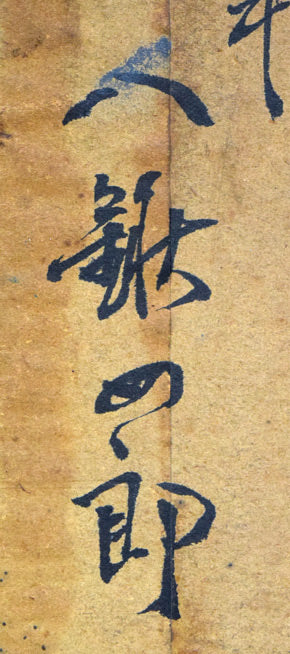 八鍬四郎